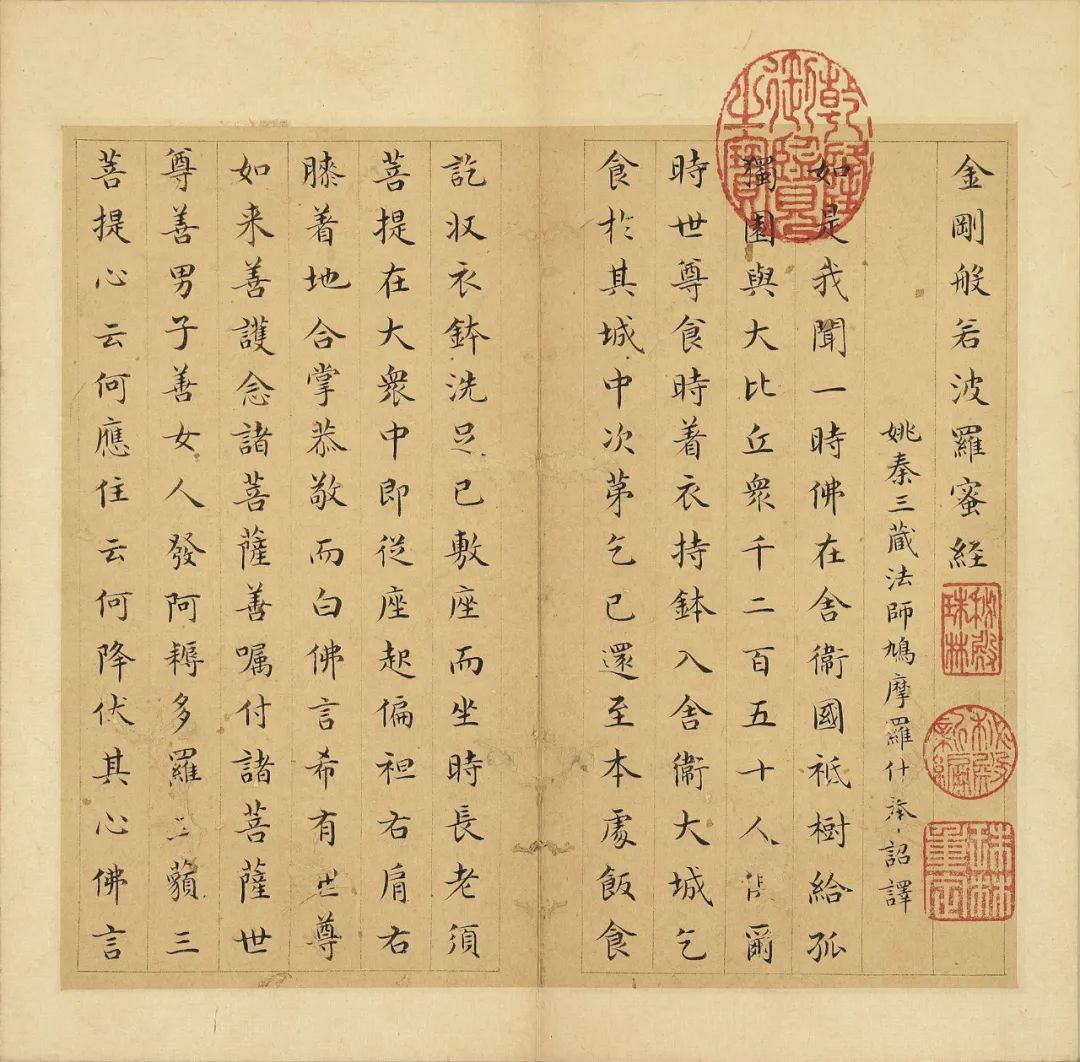 乾隆御覽之寶
金剛般若波羅蜜経
秘殿珠林
秘殿新編
珠林重定
姚秦三蔵法師鳩摩羅什奉詔譯
如是我聞一時佛在舍衛國祇樹給孤
獨園與大比丘衆千二百五十人俱爾
時世尊食時着衣持鉢入舍衛大城乞
食於其城中次第乞已還至本處飯食
訖収衣鉢洗足已敷座而坐時長老須
菩提在大衆中即從座起偏袒右肩右
膝着地合掌恭敬而白佛言希有世尊
如来善護念諸菩薩善嘱付諸菩薩世
尊善男子善女人發阿耨多羅三藐三
菩提心云何應住云何降伏其心佛言